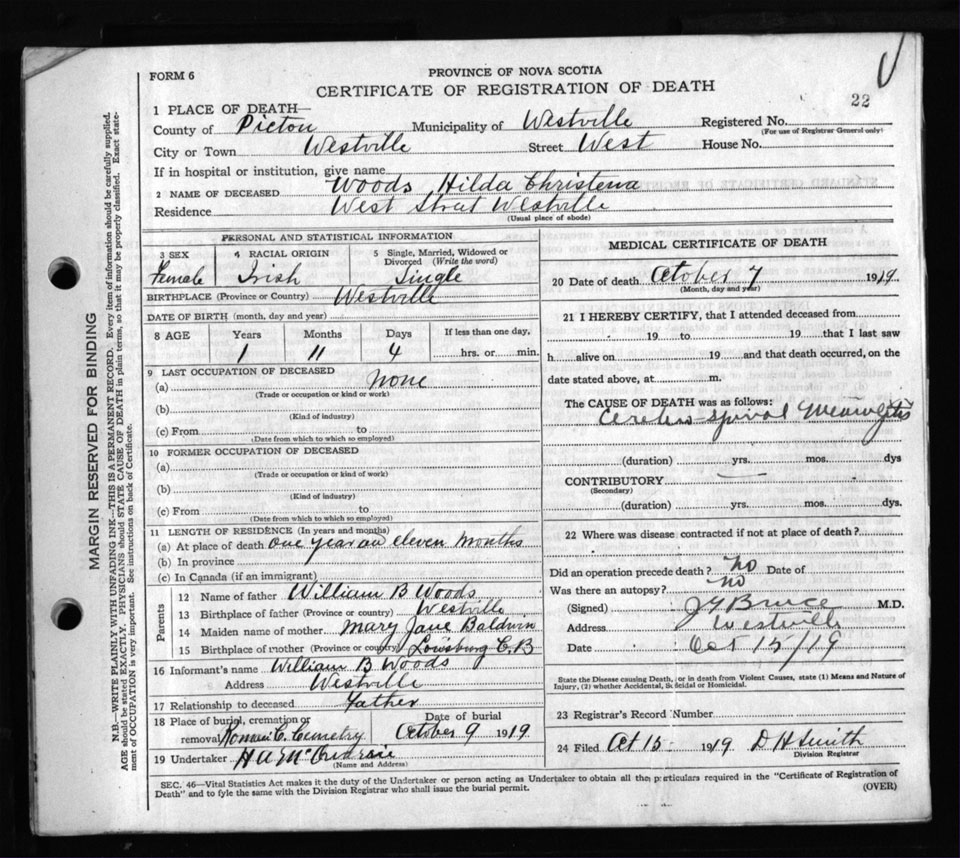 FORM 6
PROVINCE OF NOVA SCOTIA
CERTIFICATE OF REGISTRATION OF DEATH
22
1 PLACE OF DEATH—
County of Pictou Municipality of Westville Registered No.
(For use of Registrar General only)
City or Town Westville Street West House No.
If in hospital or institution, give name
2 NAME OF DECEASED Woods Hilda Christena
Residence West Street Westville
(Usual place of abode)
PERSONAL AND STATISTICAL INFORMATION
3 SEX Female
4 RACIAL ORIGIN Irish
5 Single, Married, Widowed or Divorced (Write the word) Single
BIRTHPLACE (Province or Country) Westville
DATE OF BIRTH (month, day and year)
8 AGE Years Months Days If less than one day,
1 11 4 hrs. or min.
9 LAST OCCUPATION OF DECEASED
(a) None
(Trade or occupation or kind or work)
(b)
(Kind of industry)
(c) From to
(Date from which to which so employed)
10 FORMER OCCUPATION OF DECEASED
(a)
(Trade or occupation or kind of work)
(b)
(Kind of industry)
(c) From to
(Date from which to which so employed)
11 LENGTH OF RESIDENCE (In years and months)
(a) At place of death one year an eleven months
(b) In province
(c) In Canada (if an immigrant)
Parents
12 Name of father William B Woods
13 Birthplace of father (Province or country) Westville
14 Maiden name of mother Mary Jane Baldwin
15 Birthplace of mother (Province or country) Louisburg C.B
16 Informant's name William B Woods
Address Westville
17 Relationship to deceased Father
18 Place of burial, cremation or removal C. Cemetry
Date of burial October 9 1919
19 Undertaker
(Name and Address)
MEDICAL CERTIFICATE OF DEATH
20 Date of death October 7 1919
(Month, day and year)
21 I HEREBY CERTIFY, that I attended deceased from
19 to 19 that I last saw
h alive on 19 and that death occurred, on the
date stated above, at m.
The CAUSE OF DEATH was as follows:
Cerebro-spinal Meningitis
(duration) yrs. mos. dys
CONTRIBUTORY
(Secondary)
(duration) yrs. mos. dys.
22 Where was disease contracted if not at place of death?
Did an operation precede death? no Date of
Was there an autopsy? no
(Signed) Bruce M.D.
Address Westville
Date Oct 15/19
State the Disease causing Death, or in death from Violent Causes, state (1) Means and Nature of
Injury, (2) whether Accidental, Suicidal or Homicidal.
23 Registrar's Record Number
24 Filed Oct 15 1919 D H Smith
Division Registrar
SEC. 46—Vital Statistics Act makes it the duty of the Undertaker or person acting as Undertaker to obtain all the particulars required in the "Certificate of Registration of
Death" and to fyle the same with the Division Registrar who shall issue the burial permit.
(OVER)
MARGIN RESERVED FOR BINDING
N.B.—WRITE PLAINLY WITH UNFADING INK—THIS IS A PERMANENT RECORD. Every item of information should be carefully supplied.
AGE should be stated EXACTLY. PHYSICIANS should STATE CAUSE OF DEATH in plain terms, so that it may be properly classified. Exact state-
ment of OCCUPATION is very important. See instructions on back of Certificate.